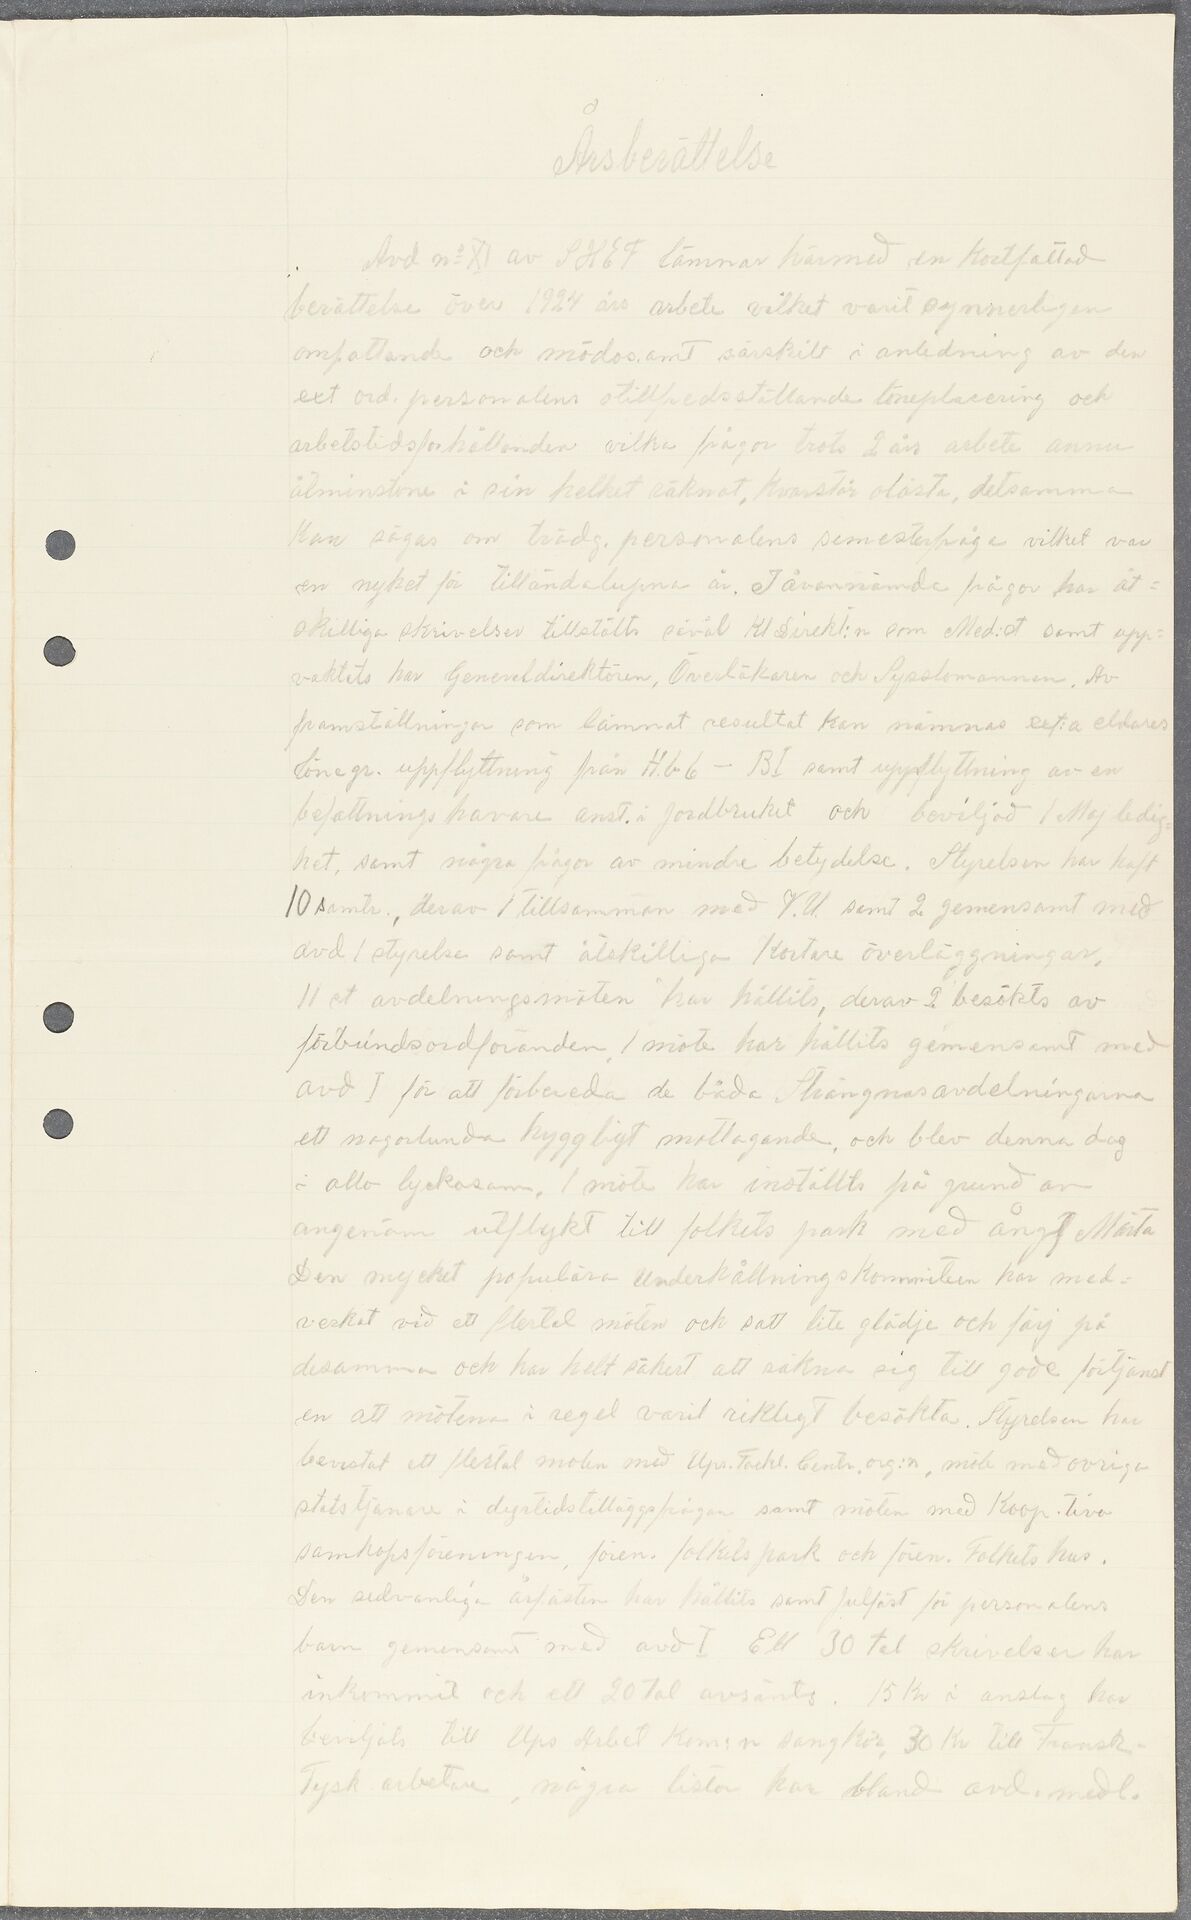 Årsberättelse
Avd nº XI av SHEF lämnar härmed en kortfattad
berättelse över 1924 års arbete vilket varit synnerligen
omfattande och mödosamt särskilt i anledning av den
ext ord. personalens otillfredsställande löneplacering och
arbetstidsförhållanden vilka frågor trots 2 års arbete ännu
åtminstone i sin helhet räknat, kvarstår olösta, detsamma
kan sägas om trädg. personalens semesterfråga vilket var
en nyhet för tilländalupna år. I ovannämda frågor har åt=
skilliga skrivelser tillstälts såväl Kl Direkt:n som Med:st samt upp=
vaktats har Generaldirektören, Överläkaren och Sysslomannen. Av
framställningar som lämnat resultat kan nämnas ext:a eldares
lönegr. uppflyttning från H.b6 - BI samt uppflyttning av en
befattningshavare anst. i jordbruket och beviljad 1 Maj ledig=
het, samt några frågor av mindre betydelse. Styrelsen har haft
10 samtr., derav 1 tillsamman med V.U. samt 2 gemensamt med
avd 1 styrelse samt åtskilliga kortare överläggningar.
11 st avdelningsmöten har hållits, derav 2 besökts av
förbundsordföranden, 1 möte har hållits gemensamt med
avd I för att förbereda de båda Strängnäsavdelningarna
ett nagorlunda hyggligt mottagande, och blev denna dag
i allo lyckosam. 1 möte har inställts på grund av
angenäm utflykt till folkets park med ångf Märta
Den mycket populära underhållningskommitteen har med=
verkat vid ett flertal möten och satt lite glädje och färj på
desamma och har helt säkert att räkna sig till godo förtjänst
en att mötena i regel varit rikligt besökta. Styrelsen har
bevistat ett flertal möten med Ups. Fackl. Centr. org:n, möte med övriga
statstjänare i dyrtidstilläggsfrågan samt möten med Koop. tiva
samköpsföreningen, fören. folkets park och fören. Folkets hus.
Den sedvanliga årfästen har hållits samt julfäst för personalens
barn gemensamt med avd I Ett 30 tal skrivelser har
inkommit och ett 20 tal avsänts. 15 Kr i anslag har
beviljats till Ups Arbet Komm:n sangkör, 30 Kr till Fransk-
Tysk arbetare, några listor har bland avd. medl.